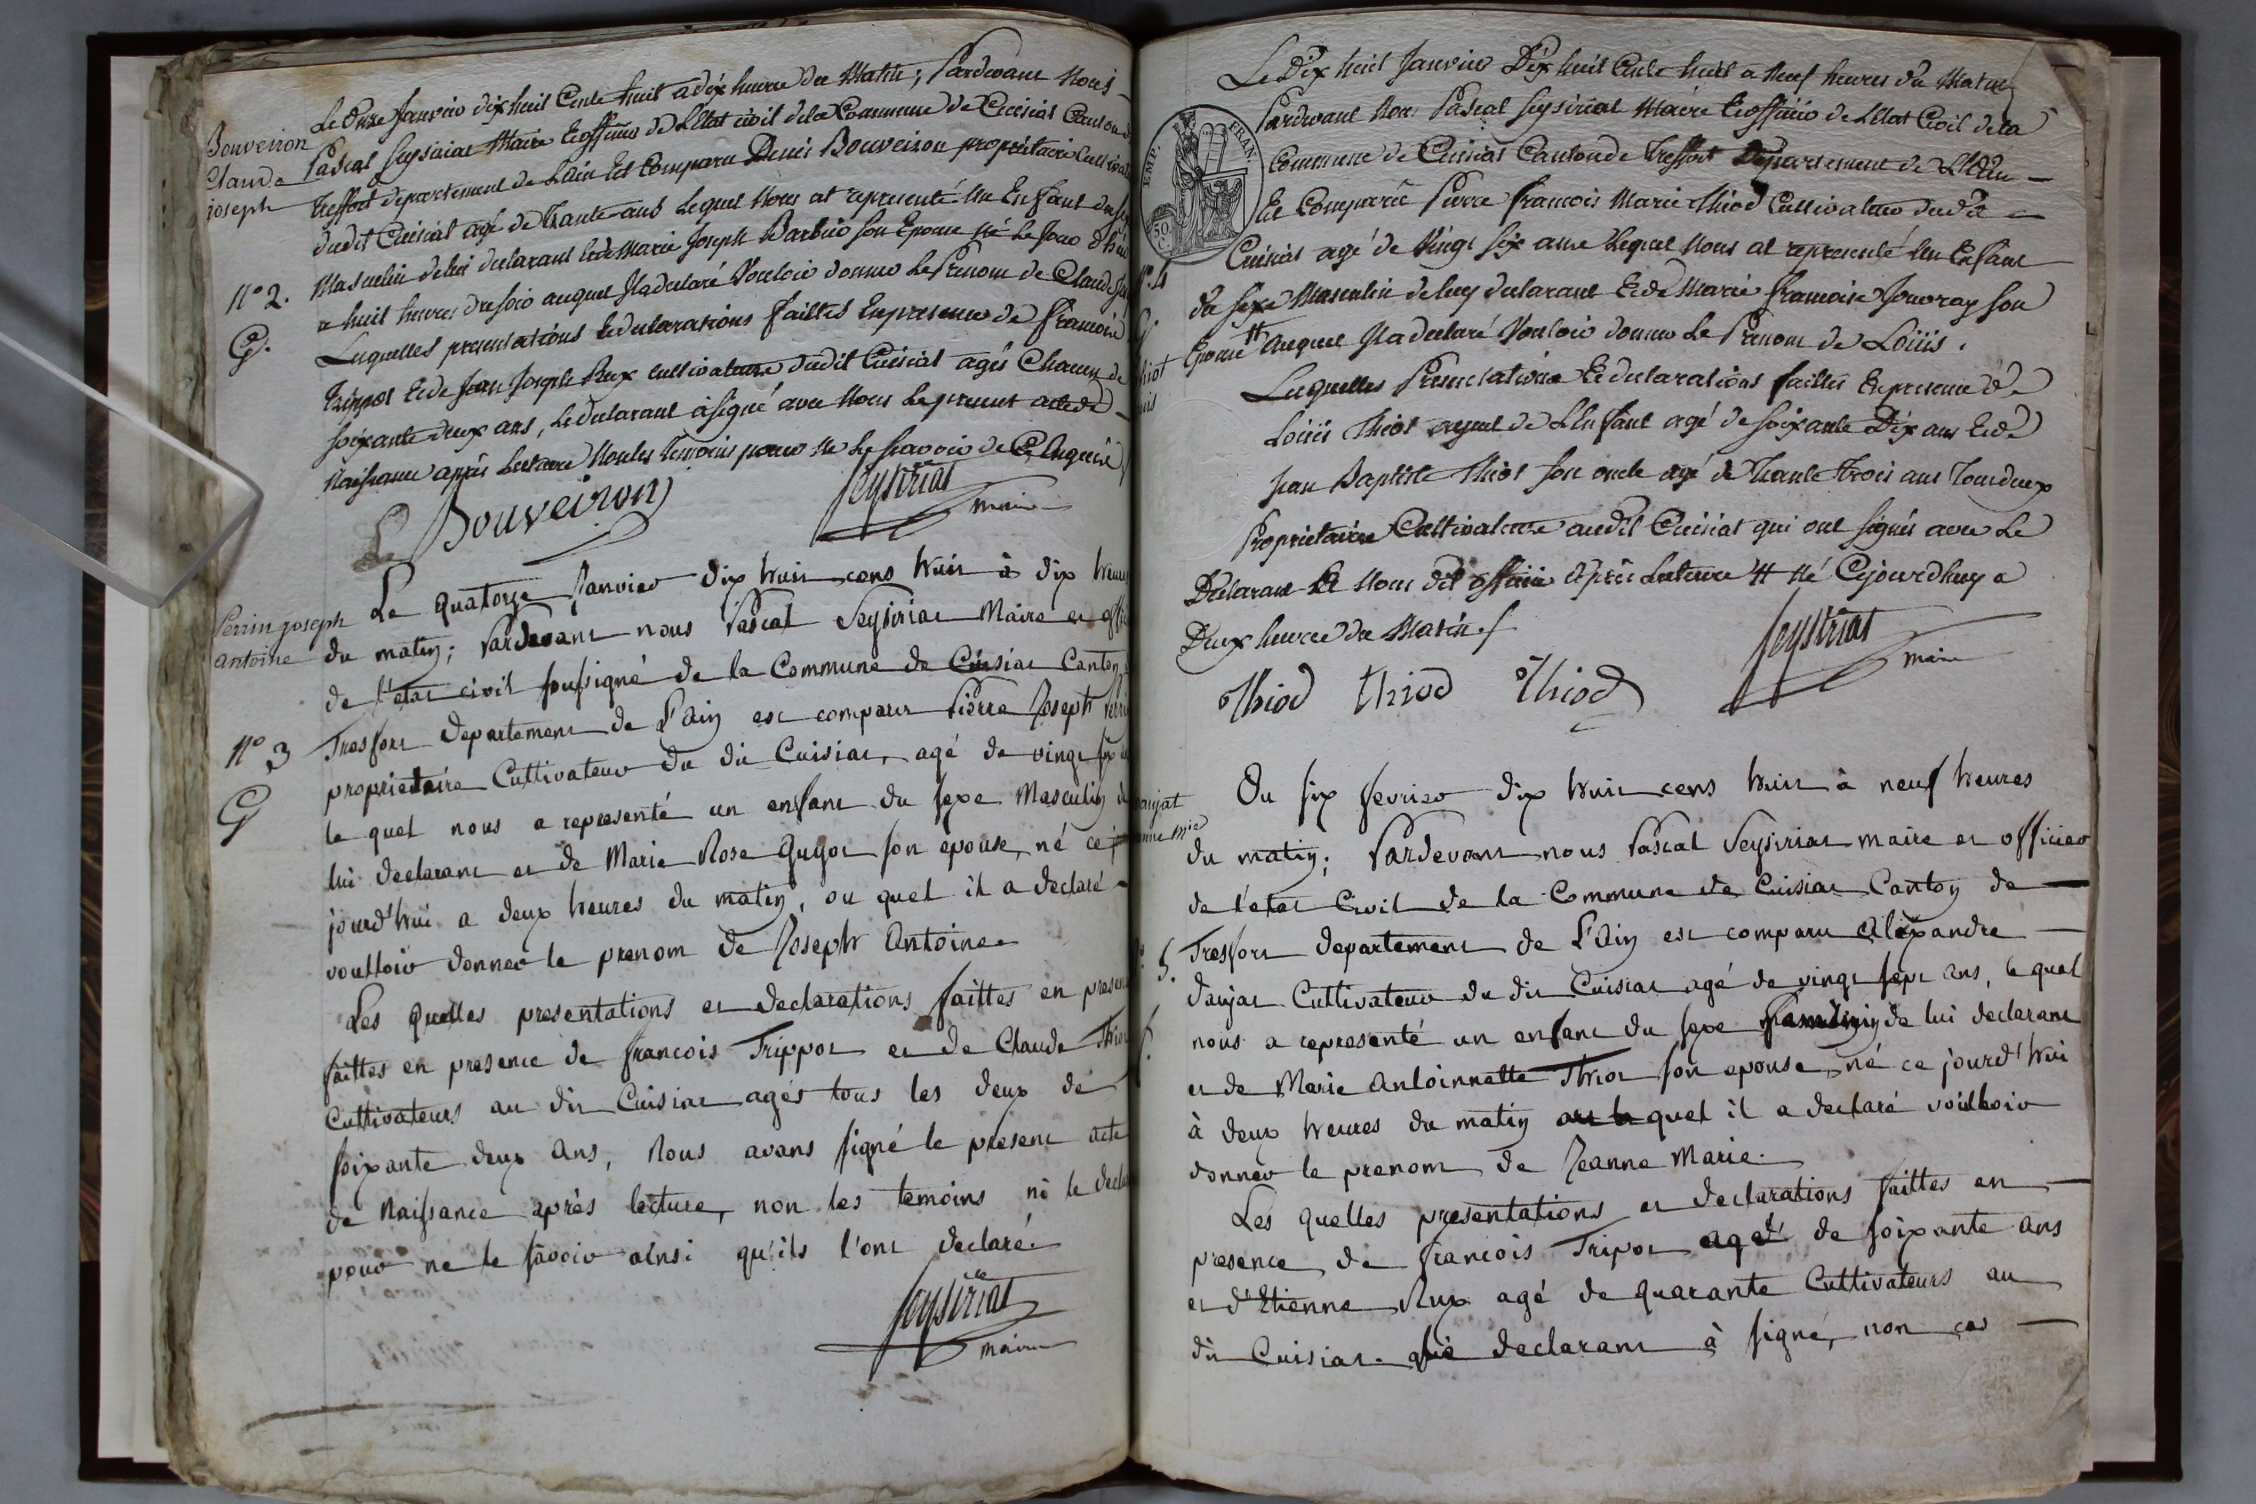 Bouveiron
Claude
joseph
N° 2.
G.
Le Onze Janvier dix huit Cents huit a dix heures du Matin; Pardevant Nous
Pascal Seysiriat Maire Et officier de L'Etat civil de la Commune de Cuisiat Canton de
treffort departement de Lain Est Comparu Denis Bouveiron propriétaire Cultivateur
dudit Cuisiat agé de trante ans Lequel Nous at representé Un Enfant du sexe
Masculin de lui declarant Et de Marie Joseph Barbier son Epouse né Le jour d'hier
a huit heures du soir auquel Il a declaré Vouloir donner Le Prenom de Claude
Lesquelles presentations Et declarations faittes En presence de francois
Trippot Et de Jean Joseph Rux cultivateurs dudit Cuisiat agés Chacun de
soixante deux ans, Le declarant à signé avec Nous Le present acte de
Naissance après Lecture Non les temoins pour ne Le savoir de Ce Enquis
D Bouveiron
Seysiriat
maire
Perrin joseph
antoine
N° 3
G
Le quatorze Janvier dix huit cens huit à dix heures
du matin; Pardevant nous Pascal Seysiriat Maire et offi
de l'etat civil soussigné de la Commune de Cuisiat Canton
Tresfort departement de L'Ain est comparu Pierre Joseph Perrin
proprietaire Cultivateur du dit Cuisiat, agé de vingt six
le quel nous a representé un enfant du sexe Masculin de
lui declarant et de Marie Rose Guyot son epouse, né ce
jourd'hui a deux heures du matin, au quel il a declaré
voulloir donner le prenom de Joseph Antoine.
Les quelles presentations et declarations faittes en presence
faittes en presence de francois Trippot et de Claude Thiot
Cultivateurs au dit Cuisiat agés tous les deux de
soixante deux ans, Nous avons signé le present acte
de Naissance après lecture, non les temoins ni le decla
pour ne le savoir ainsi qu'ils l'ont declaré.
Seysiriat
maire
EMP. FRAN.
50
C.
N° 4
G
hiot
uis
Le Dix huit Janvier Dix huit Cents huit a Neuf heures du Matin
Pardevant Nous Pascal Seysiriat Maire Et officier de L'Etat Civil de la
Commune de Cuisiat Canton de Treffort Departement de L'Ain
Est Comparu Pierre francois Marie Thiod Cultivateur dudit
Cuisiat agé de Vingt six ans Lequel Nous at representé Un Enfant
du sexe Masculin de luy declarant Et de Marie francoise Jouvray son
Epouse # Auquel Il a declaré Vouloir donner Le Prenom de Loüis.
Lesquelles Presentations Et declarations faittes En presence de
Loüis Thiot ayeul de L'Enfant agé de soixante Dix ans Et de
Jean Baptiste Thiot son oncle agé de Trante trois ans Tous deux
Proprietaires Cultivateurs audit Cuisiat qui ont signés avec Le
Declarant Et Nous dit officier après Lecture # Né Cejourdhuy a
Deux heures du Matin.
Seysiriat
maire
Thiod Thiod Thiod
anjat
anne Mie
5.
f.
Du six fevrier dix huit cens huit à neuf heures
du matin; Pardevant nous Pascal Seysiriat maire et officier
de l'etat Civil de la Commune de Cuisiat Canton de
Tresfort departement de L'Ain est comparu Alexandre
danjat Cultivateur du dit Cuisiat agé de vingt sept ans, le quel
nous a representé un enfant du sexe feminin de lui declarant
et de Marie Antoinnette Thiot son epouse, né ce jourd'hui
à deux heures du matin au quel il a declaré voulloir
donner le prenom de Jeanne Marie.
Les quelles presentations et declarations faittes en
presence de francois Tripot agé de soixante ans
et d'Etienne Rux agé de quarante Cultivateurs au
dit Cuisiat. le declarant à signé, non ces